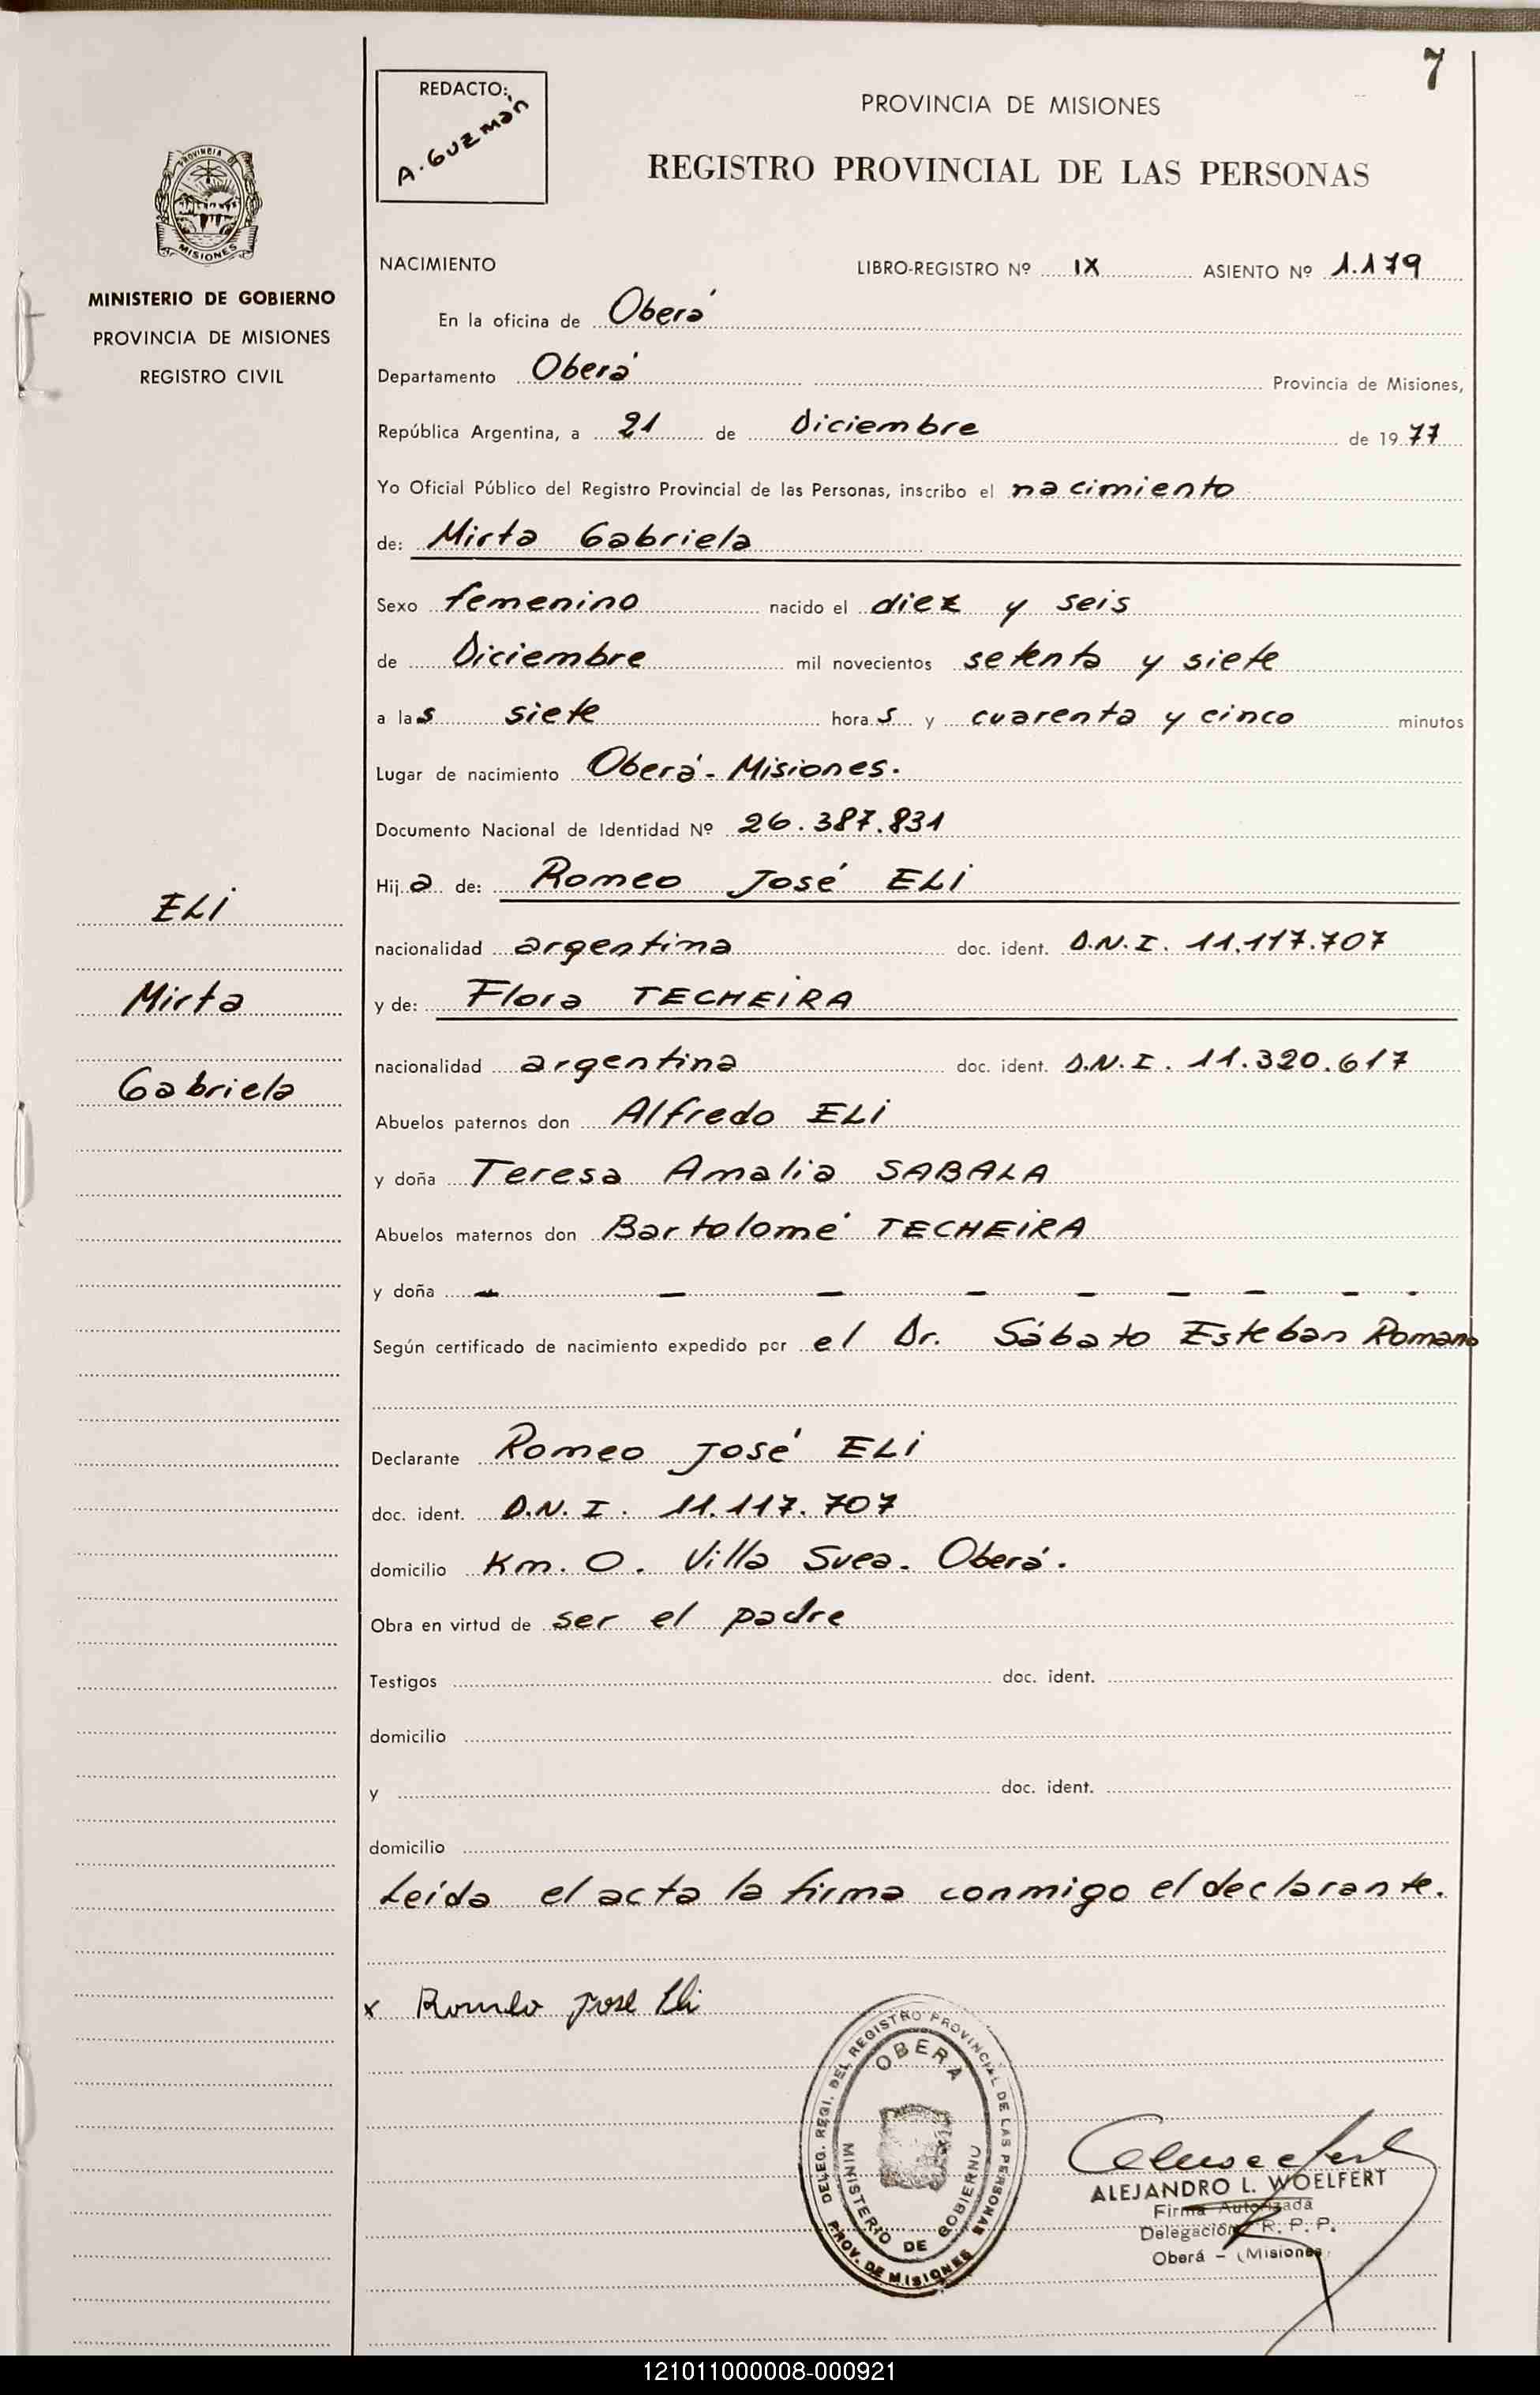 7
REDACTO:
A. Guzmán
PROVINCIA DE MISIONES
REGISTRO PROVINCIAL DE LAS PERSONAS
PROVINCIA DE
MISIONES
MINISTERIO DE GOBIERNO
PROVINCIA DE MISIONES
REGISTRO CIVIL
NACIMIENTO LIBRO-REGISTRO Nº IX ASIENTO Nº 1.179
En la oficina de Oberá
Departamento Oberá Provincia de Misiones,
República Argentina, a 21 de Diciembre de 1977
Yo Oficial Público del Registro Provincial de las Personas, inscribo el nacimiento
de: Mirta Gabriela
Sexo femenino nacido el diez y seis
de Diciembre mil novecientos setenta y siete
a las siete horas y cuarenta y cinco minutos
Lugar de nacimiento Oberá - Misiones.
Documento Nacional de Identidad Nº 26.387.831
Hija de: Romeo José ELI
nacionalidad argentina doc. ident. D.N.I. 11.117.707
y de: Flora TECHEIRA
nacionalidad argentina doc. ident. D.N.I. 11.320.617
Abuelos paternos don Alfredo ELI
y doña Teresa Amalia SABALA
Abuelos maternos don Bartolomé TECHEIRA
y doña - - - - - - - - -
Según certificado de nacimiento expedido por el Dr. Sábato Esteban Romano
Declarante Romeo José ELI
doc. ident. D.N.I. 11.117.707
domicilio Km. 0. Villa Svea. Oberá.
Obra en virtud de ser el padre
Testigos doc. ident.
domicilio
y doc. ident.
domicilio
Leída el acta la firma conmigo el declarante.
ELI
Mirta
Gabriela
x Romeo José Eli
DELEG. REGI. DEL REGISTRO PROVINCIAL DE LAS PERSONAS
OBERA
MINISTERIO DE GOBIERNO
PROV. DE MISIONES
ALEJANDRO L. WOELFERT
Firma Autorizada
Delegación R. P. P.
Oberá - (Misiones)
121011000008-000921